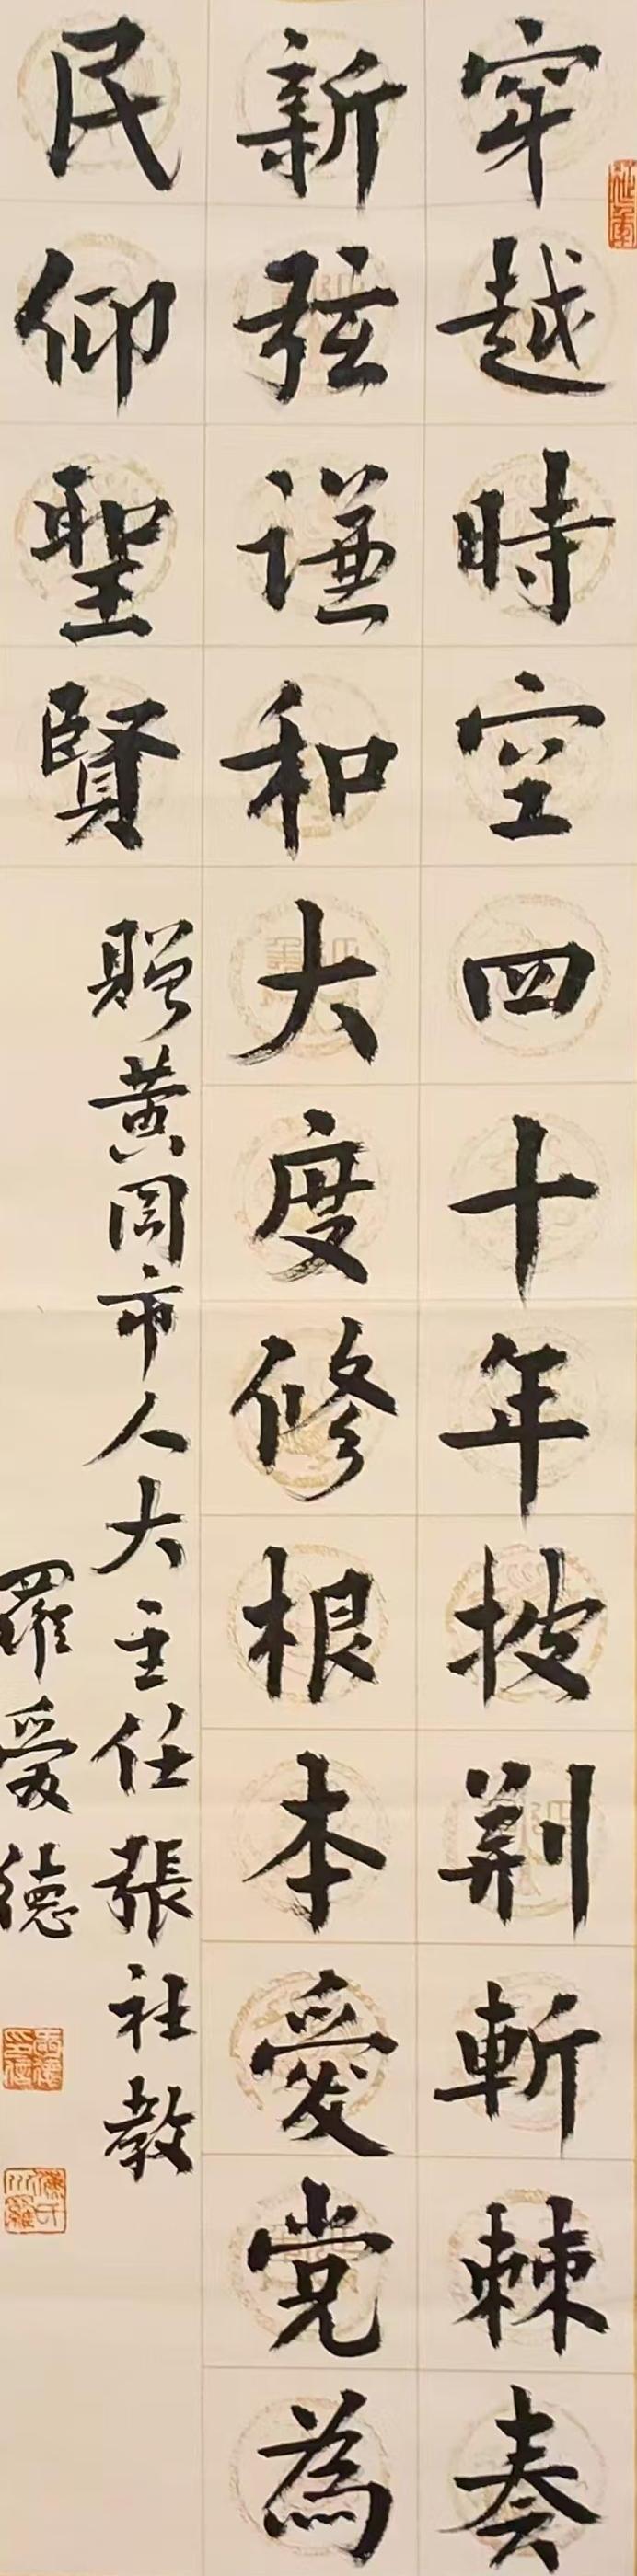 穿越時空四十年披荆斬棘奏
新弦谦和大度修根本愛党為
民仰聖賢
贈黄岡市人大主任張社教
羅愛德